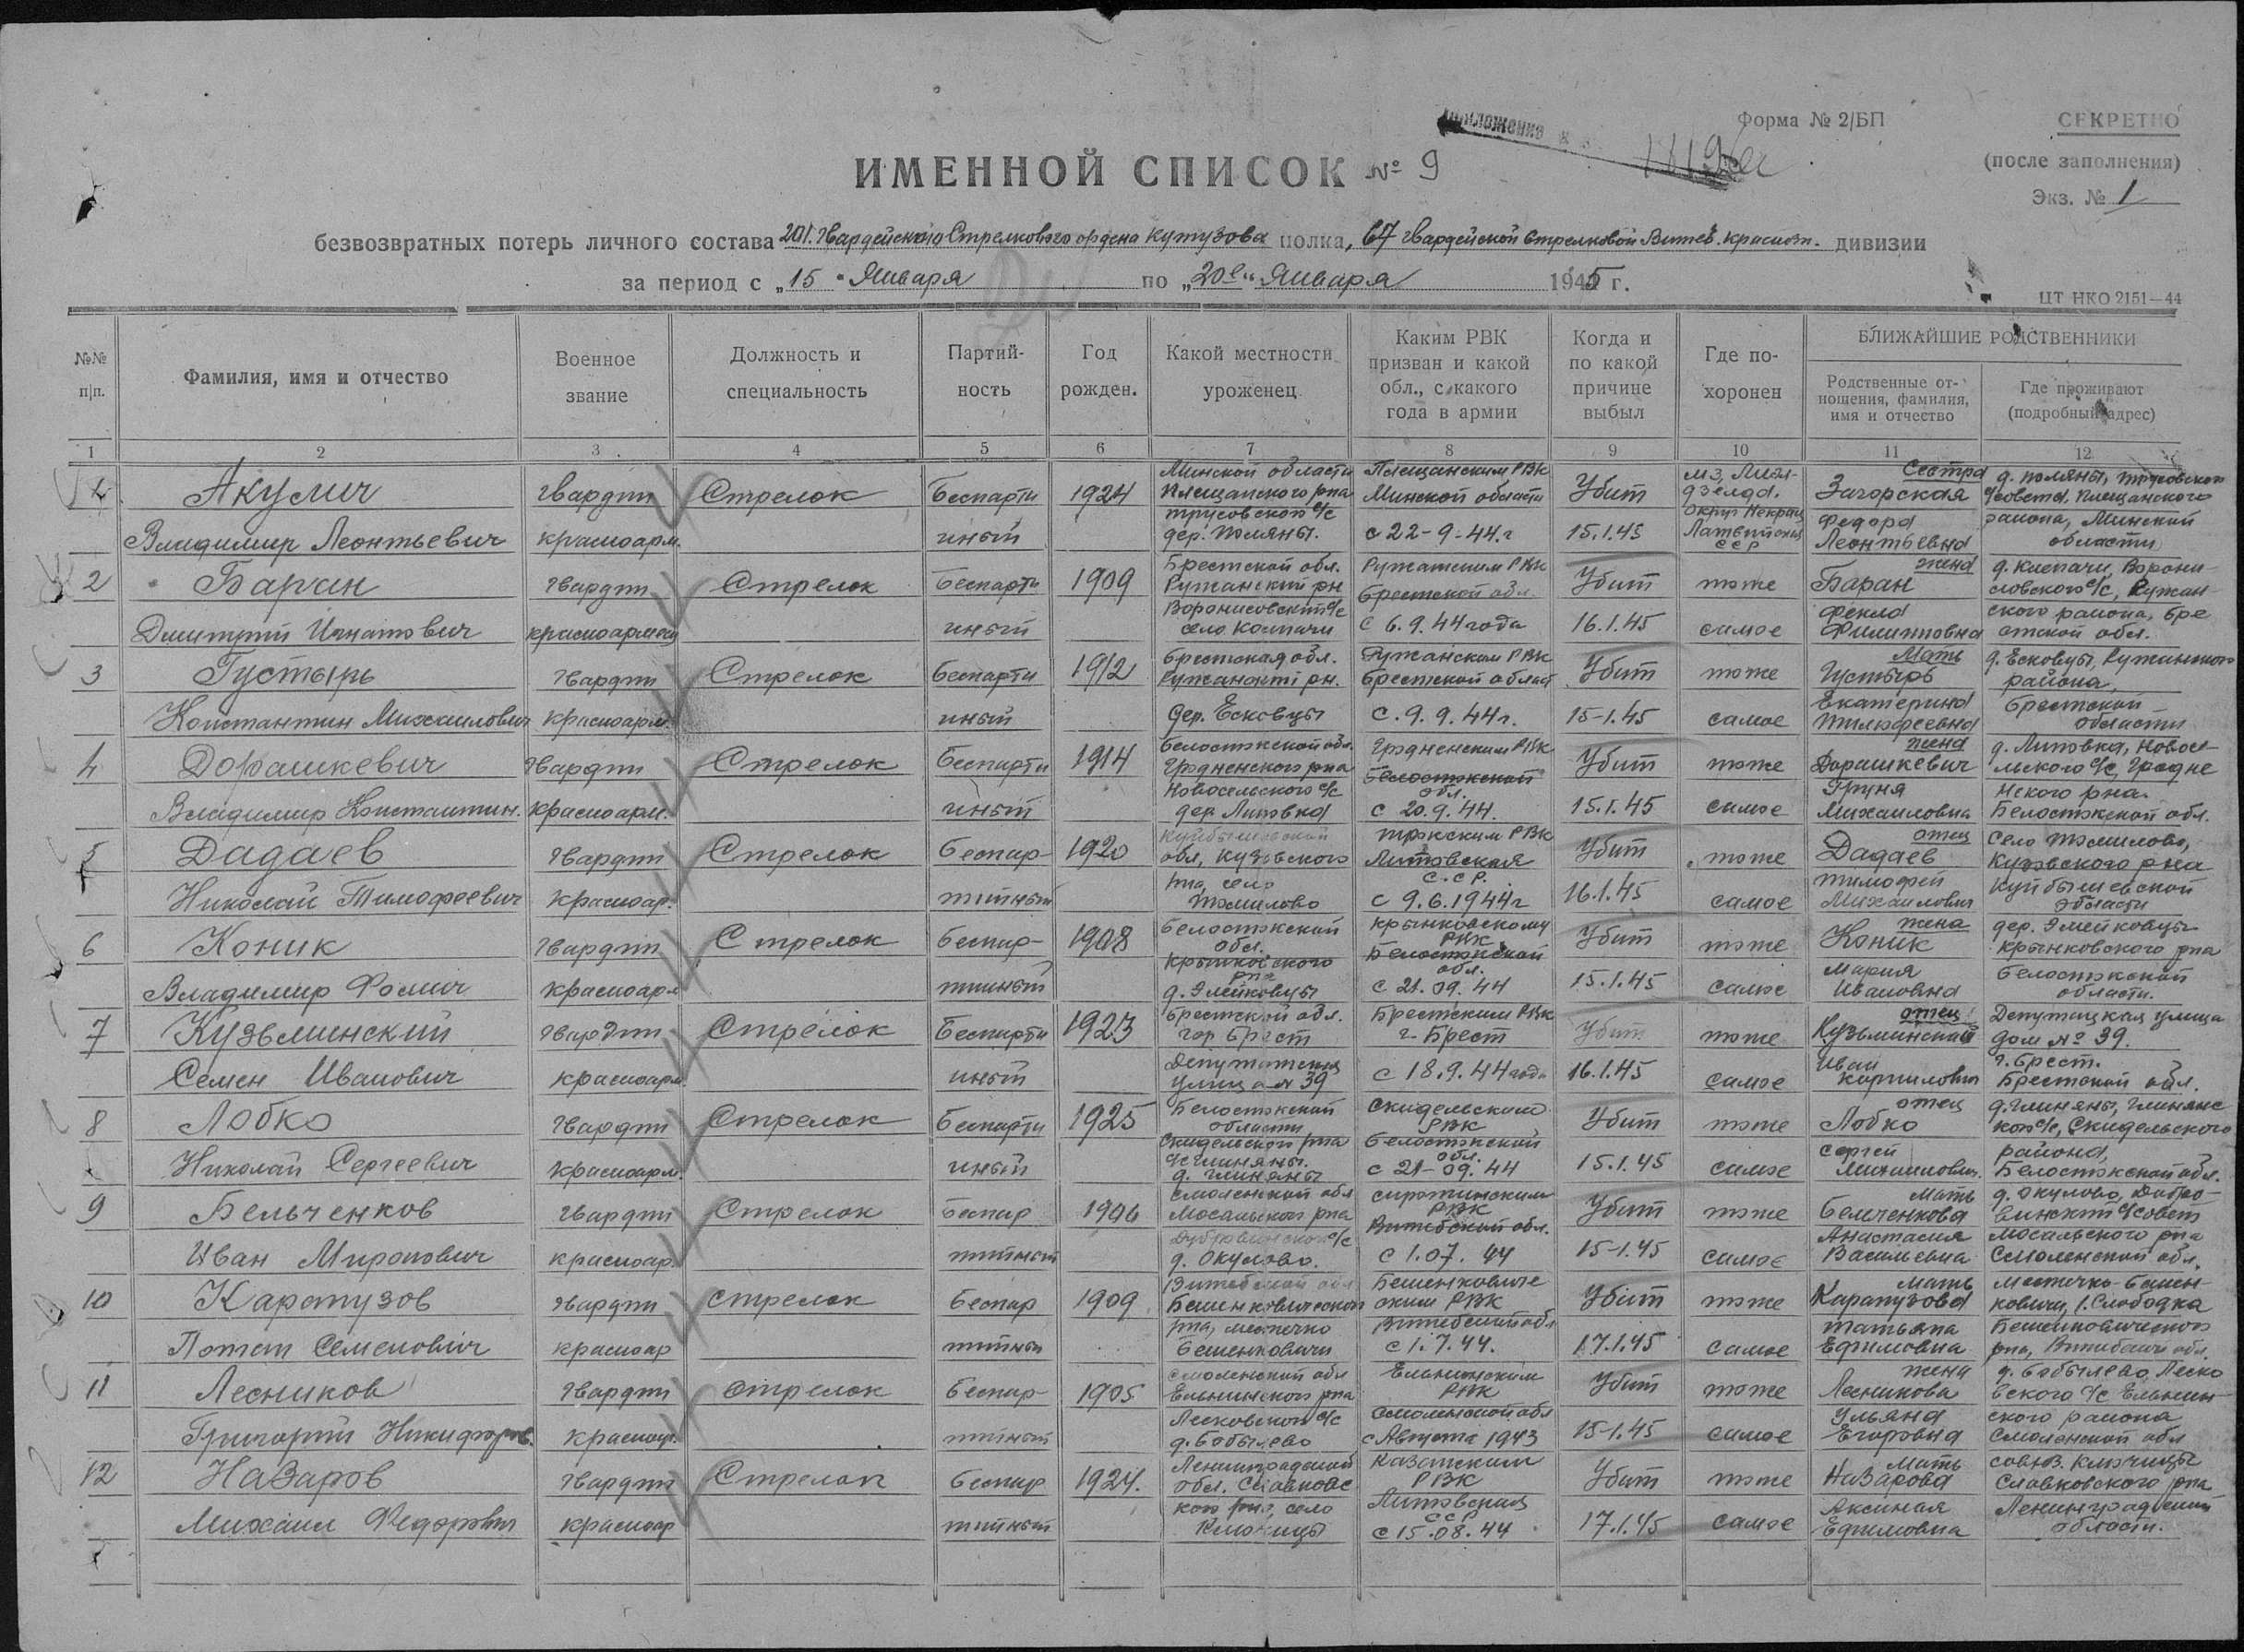 Приложение к
Форма № 2/БП
СЕКРЕТНО
(после заполнения)
Экз. № 1
ИМЕННОЙ СПИСОК № 9
безвозвратных потерь личного состава 201. Гвардейского Стрелкового ордена Кутузова полка, 67 гвардейской Стрелковой Витеб. Краснозн. дивизии
за период с „15" Января по „20е" Января 1945 г.
ЦТ НКО 2151—44
№№ п|п.
Фамилия, имя и отчество
Военное звание
Должность и специальность
Партий-ность
Год рожден.
Какой местности уроженец
Каким РВК призван и какой обл., с какого года в армии
Когда и по какой причине выбыл
Где по-хоронен
БЛИЖАЙШИЕ РОДСТВЕННИКИ
Родственные от-ношения, фамилия, имя и отчество
Где проживают (подробный адрес)
1 2 3 4 5 6 7 8 9 10 11 12
1 Акулич Владимир Леонтьевич гвардии красноарм. Стрелок Беспартийный 1924 Минской области Плещанского р-на Трусовского с/с дер. Поляны. Плещанским РВК Минской области с 22-9-44.г Убит 15.1.45 Латвийская ССР Сестра Загорская Федора Леонтьевна д. Поляны, Трусовского с/совета, Плещанского района, Минской области
2 Баран Дмитрий Игнатович гвардии красноармеец Стрелок Беспартийный 1909 Брестской обл. Ружанский рн село Колпачи Ружанским РВК Брестской обл. с 6.9.44 года Убит 16.1.45 тоже самое жена Баран Фекла Филипповна Ружанского района, Брестской обл.
3 Густырь Константин Михайлович гвардии красноарм. Стрелок Беспартийный 1912 Брестская обл. Ружанский рн. Дер. Есковцы Ружанским РВК Брестской област с. 9.9.44г. Убит 15-1.45 тоже самое Мать Густырь Екатерина д. Есковцы, Ружанского района, Брестской области
4 Дорашкевич Владимир Константин. гвардии красноарм. Стрелок Беспартийный 1914 Белостокской обл. Гродненского рна Новосельского с/с дер. Литовка Гродненским РВК Белостокской обл. с 20.9.44. Убит 15.1.45 тоже самое жена Дорашкевич Груня Михаиловна д. Литовка, Новосельского с/с, Гродненского рна. Белостокской обл.
5 Дадаев Николай Тимофеевич гвардии красноар. Стрелок Беспартийный 1920 Куйбышевской обл, Кузовского рна, село Томилово Трокским РВК Литовская С.С.Р. с 9.6.1944г Убит 16.1.45 тоже самое отец Дадаев Тимофей Михаилович Село Томилово, Кузовского рна Куйбышевской области
6 Коник Владимир Фомич гвардии красноарм Стрелок Беспартийный 1908 Белостокской обл. Крынковского рна д. Элейковцы Крынковскому РВК Белостокской обл. с 21.09.44 Убит 15.1.45 тоже самое жена Коник Мария Ивановна дер. Элейковцы Крынковского рна Белостокской области.
7 Кузьминский Семен Иванович гвардии красноарм. Стрелок Беспартийный 1923 Брестской обл. гор Брест Депутатская улица № 39 Брестским РВК г. Брест с 18.9.44 года Убит 16.1.45 тоже самое отец Кузьминский Иван Депутацкая улица дом № 39. г. Брест. Брестской обл.
8 Лобко Николай Сергеевич гвардии красноарм. Стрелок Беспартийный 1925 Белостокской области Скидельского рна с/с Глиняны. д. Глиняны Скидельским РВК Белостокский обл. с 21-09.44 Убит 15.1.45 тоже самое отец Лобко Сергей Михаилович. д. Глиняны, Скидельского района, Белостокской обл.
9 Бельченков Иван Миронович гвардии красноар. Стрелок Беспартийный 1906 Смоленской обл Мосальского рна д. Окулово. Сиротинским РВК Витебской обл. с 1.07.44 Убит 15-1.45 тоже самое Мать Бельченкова Анастасия Васильевна д. Окулово, с/совет Мосальского рна Смоленской обл.
10 Карапузов Потап Семенович гвардии красноар стрелок Беспартийный 1909 Витебской обл Бешенковического рна, местечко Бешенковичи Бешенковическим РВК Витебской обл с 1.7.44. Убит 17.1.45 тоже самое Мать Карапузова Татьяна Ефимовна местечко Бешенковичи, Слободка Бешенковического рна, Витебской обл.
11 Лесников Григорий Никифоров. гвардии красноар. стрелок Беспартийный 1905 Смоленской обл Ельнинского рна Лесковского с/с д. Бобылево Ельнинским РВК Смоленской обл с Августа 1943 Убит 15-1.45 тоже самое жена Лесникова Ульяна Егоровна д. Бобылево, Лесковского с/с Ельнинского района Смоленской обл
12 Назаров Михаил Федорович гвардии красноар Стрелок Беспартийный 1924. Ленинградской обл. Славковского рна, село Ключицы РВК Литовская ССР с 15.08.44 Убит 17.1.45 тоже самое Мать Назарова Аксиния Ефимовна Ключицы Славковского рна Ленинградской области.